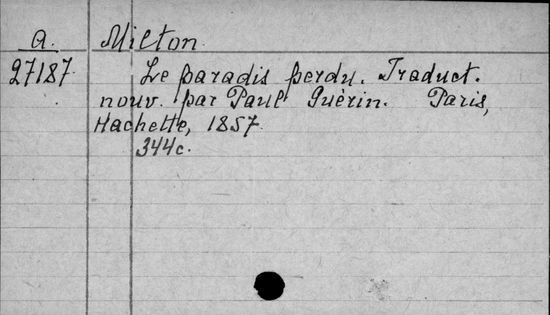 A. Milton
27187 Le paradis perdu. Traduct.
nouv. par Paul Guérin. Paris,
Hachette, 1857.
344c.